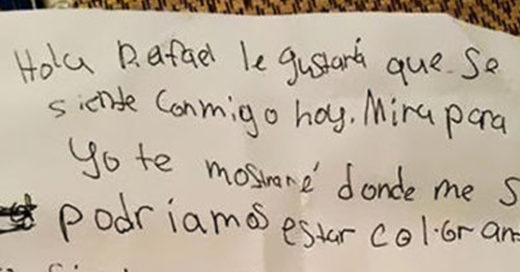 Hola Rafael le gustará que se
siente conmigo hoy. Mira para
Yo te mostraré donde me s
podriamos estar col.gran